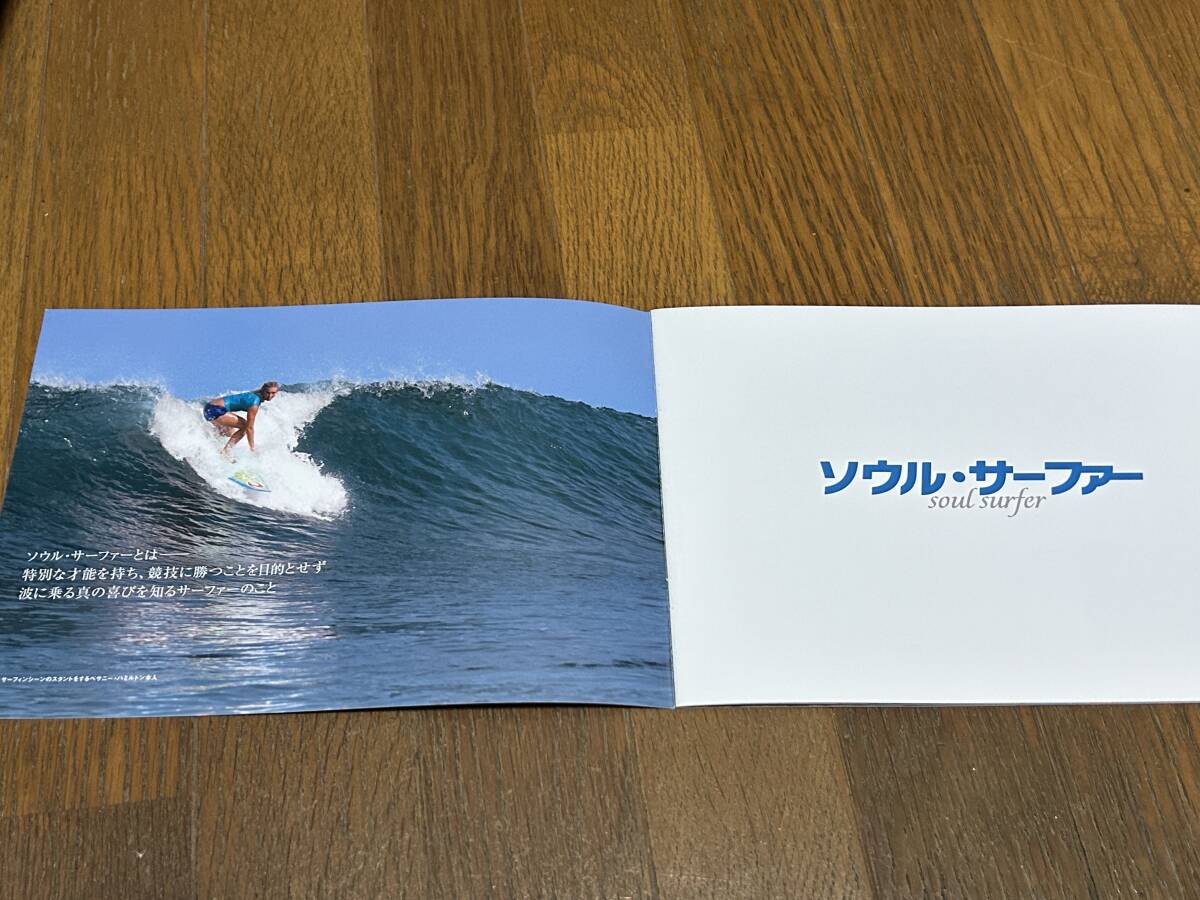 ソウル・サーファーとは——
特別な才能を持ち、競技に勝つことを目的とせず
波に乗る真の喜びを知るサーファーのこと
サーフィンシーンのスタントをするベサニー・ハミルトン本人
ソウル・サーファー
soul surfer